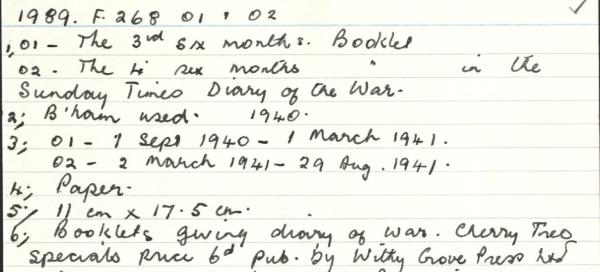 1989. F. 268 01 & 02
1, 01 - The 3rd six months. Booklet
02 - The 4 six months " in the
Sunday Times Diary of the War.
2; B'ham used. 1940.
3; 01 - 1 Sept 1940 - 1 March 1941.
02 - 2 March 1941 - 29 Aug. 1941.
4; Paper.
5; 11 cm x 17.5 cm.
6; Booklets giving diary of war. Cherry Tree
Specials price 6d pub. by Withy Grove Press Ltd